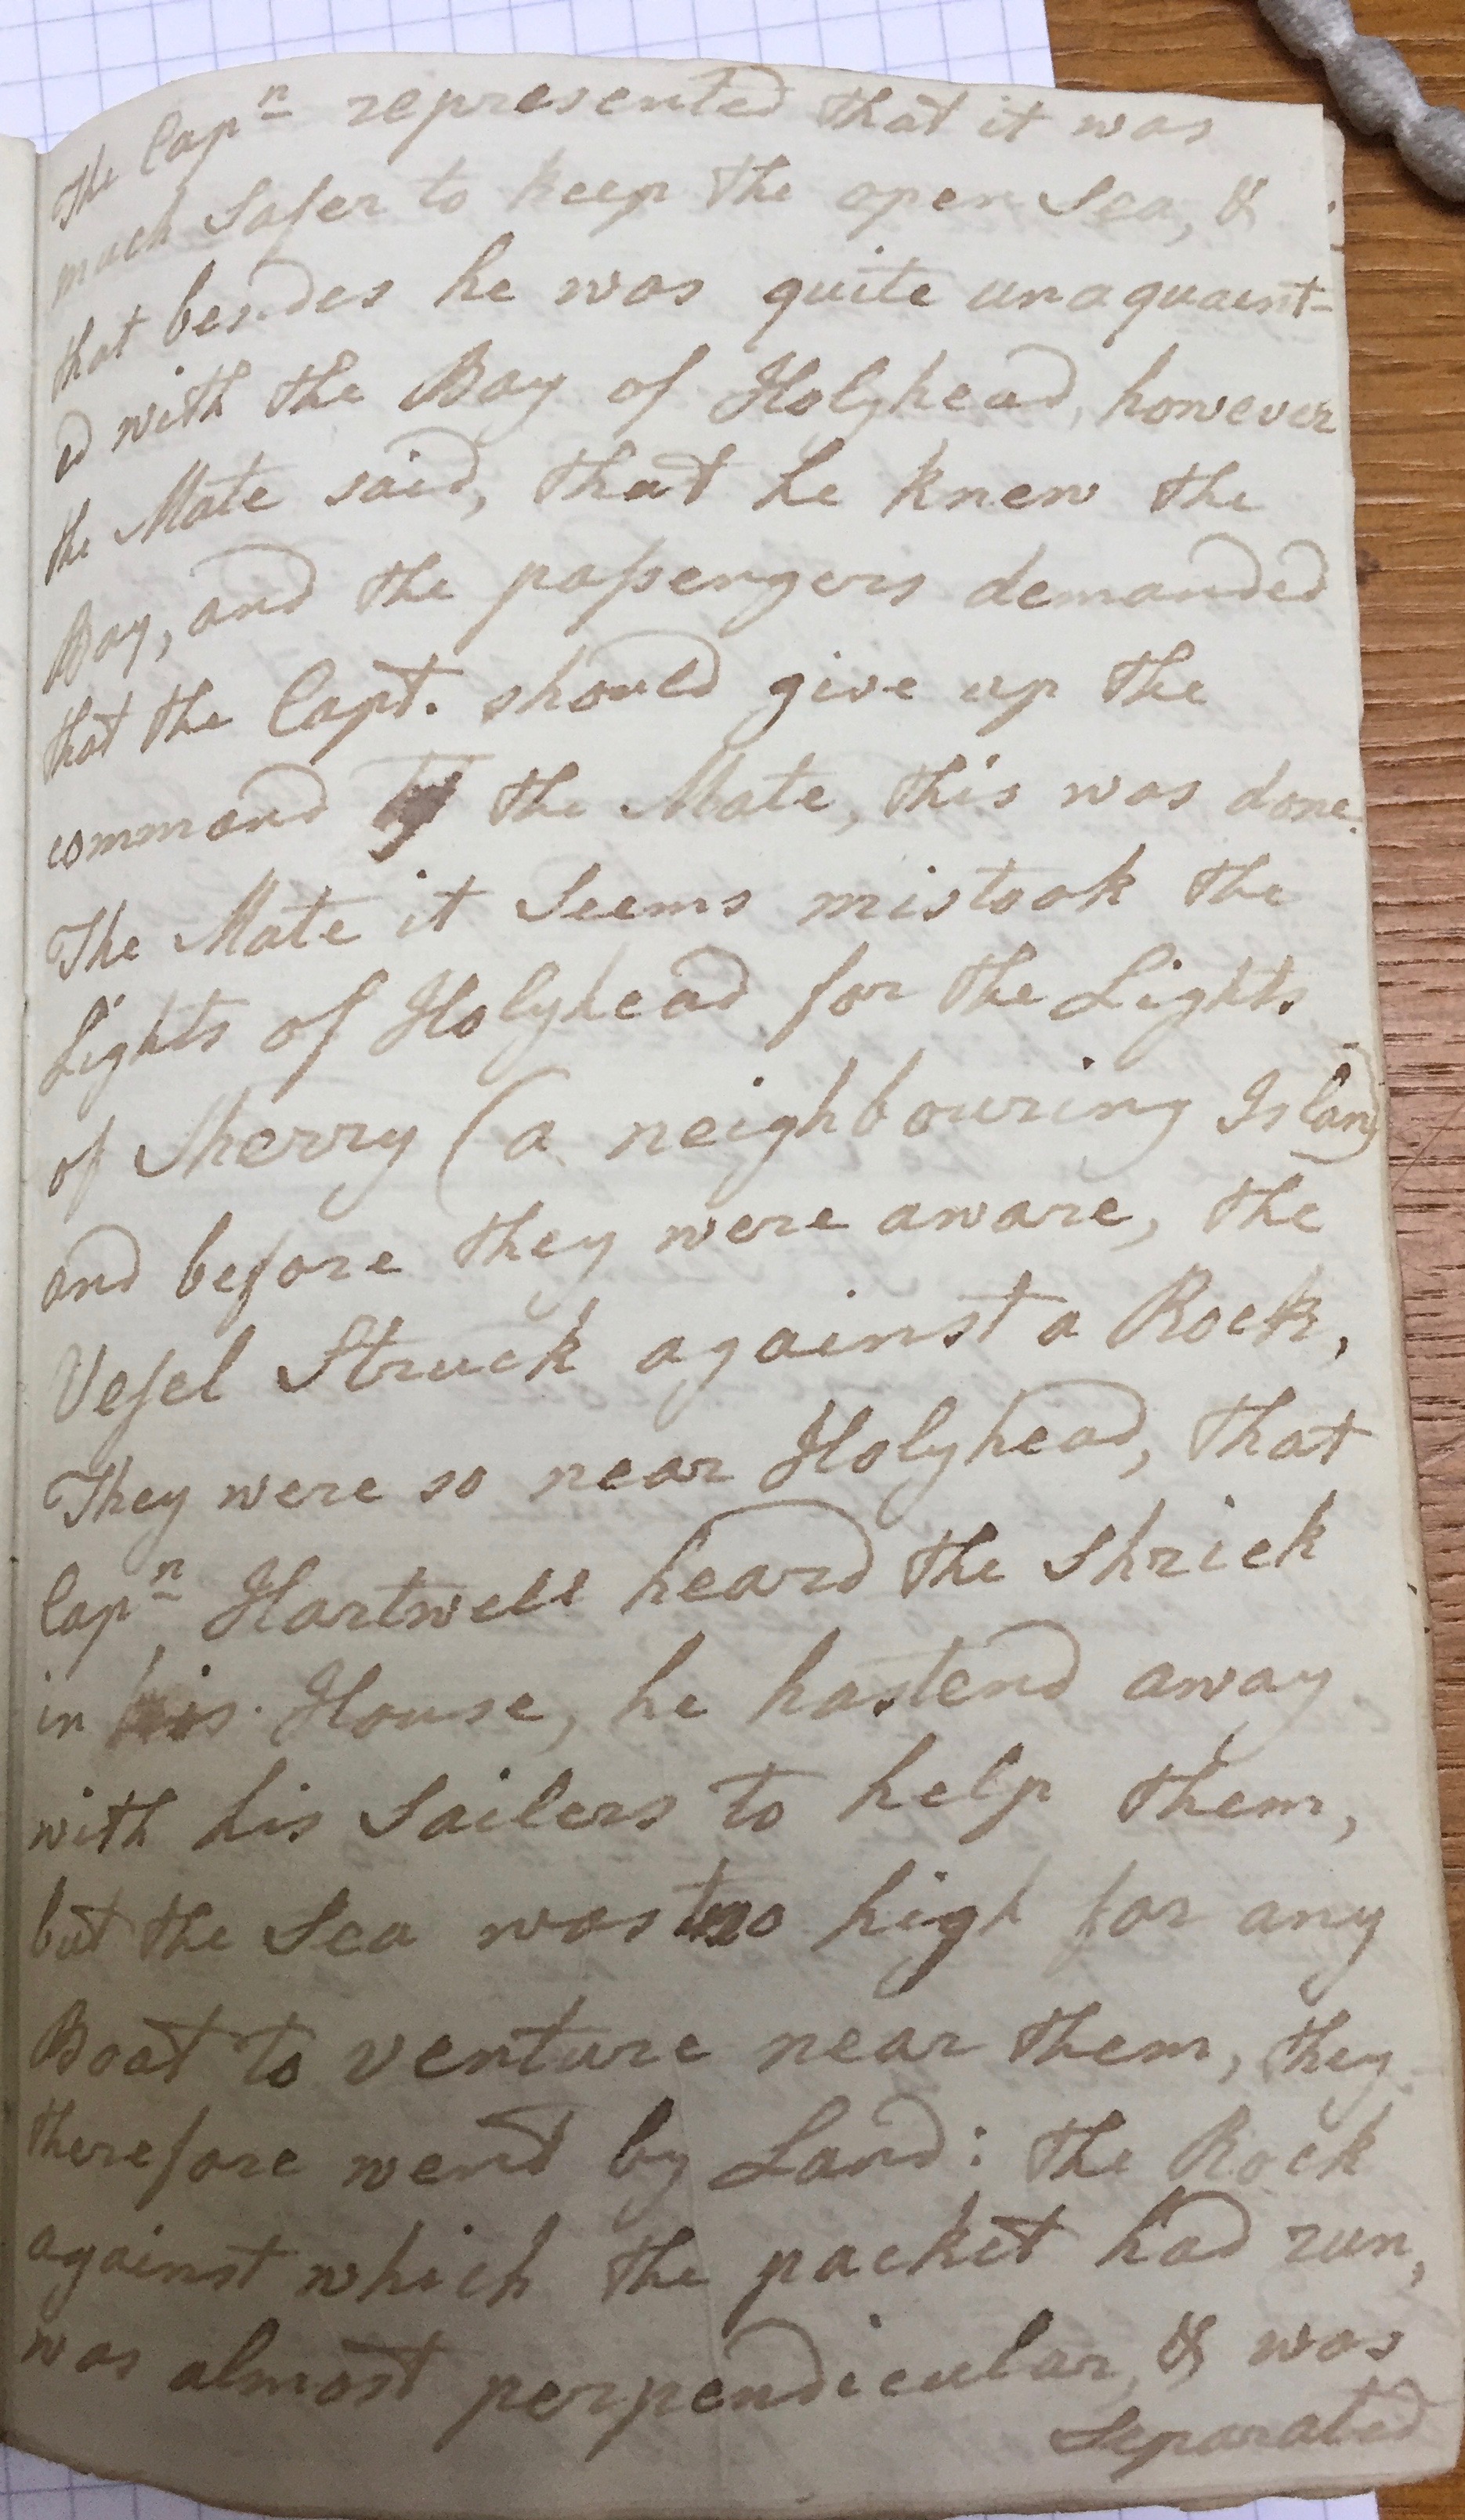 The Capn represented that it was
much Safer to keep the open Sea, &
that besides he was quite unaquaint-
ed with the Bay of Holyhead, however
the Mate said, that he knew the
Bay, and the paſsengers demanded
that the Capt. should give up the
command to the Mate, this was done.
The Mate it Seems mistook the
Lights of Holyhead for the Lights
of Skerry (a neighbouring Island)
and before they were aware, the
Veſsel Struck against a Rock,
They were so near Holyhead, that
Capn, Hartwell heard the Shriek
in his House, he hastend away
with his Sailers to help them,
but the Sea was too high for any
Boat to venture near them, they
therefore went by Land: the Rock
against which the packet had run,
was almost perpendicular, & was
Separated